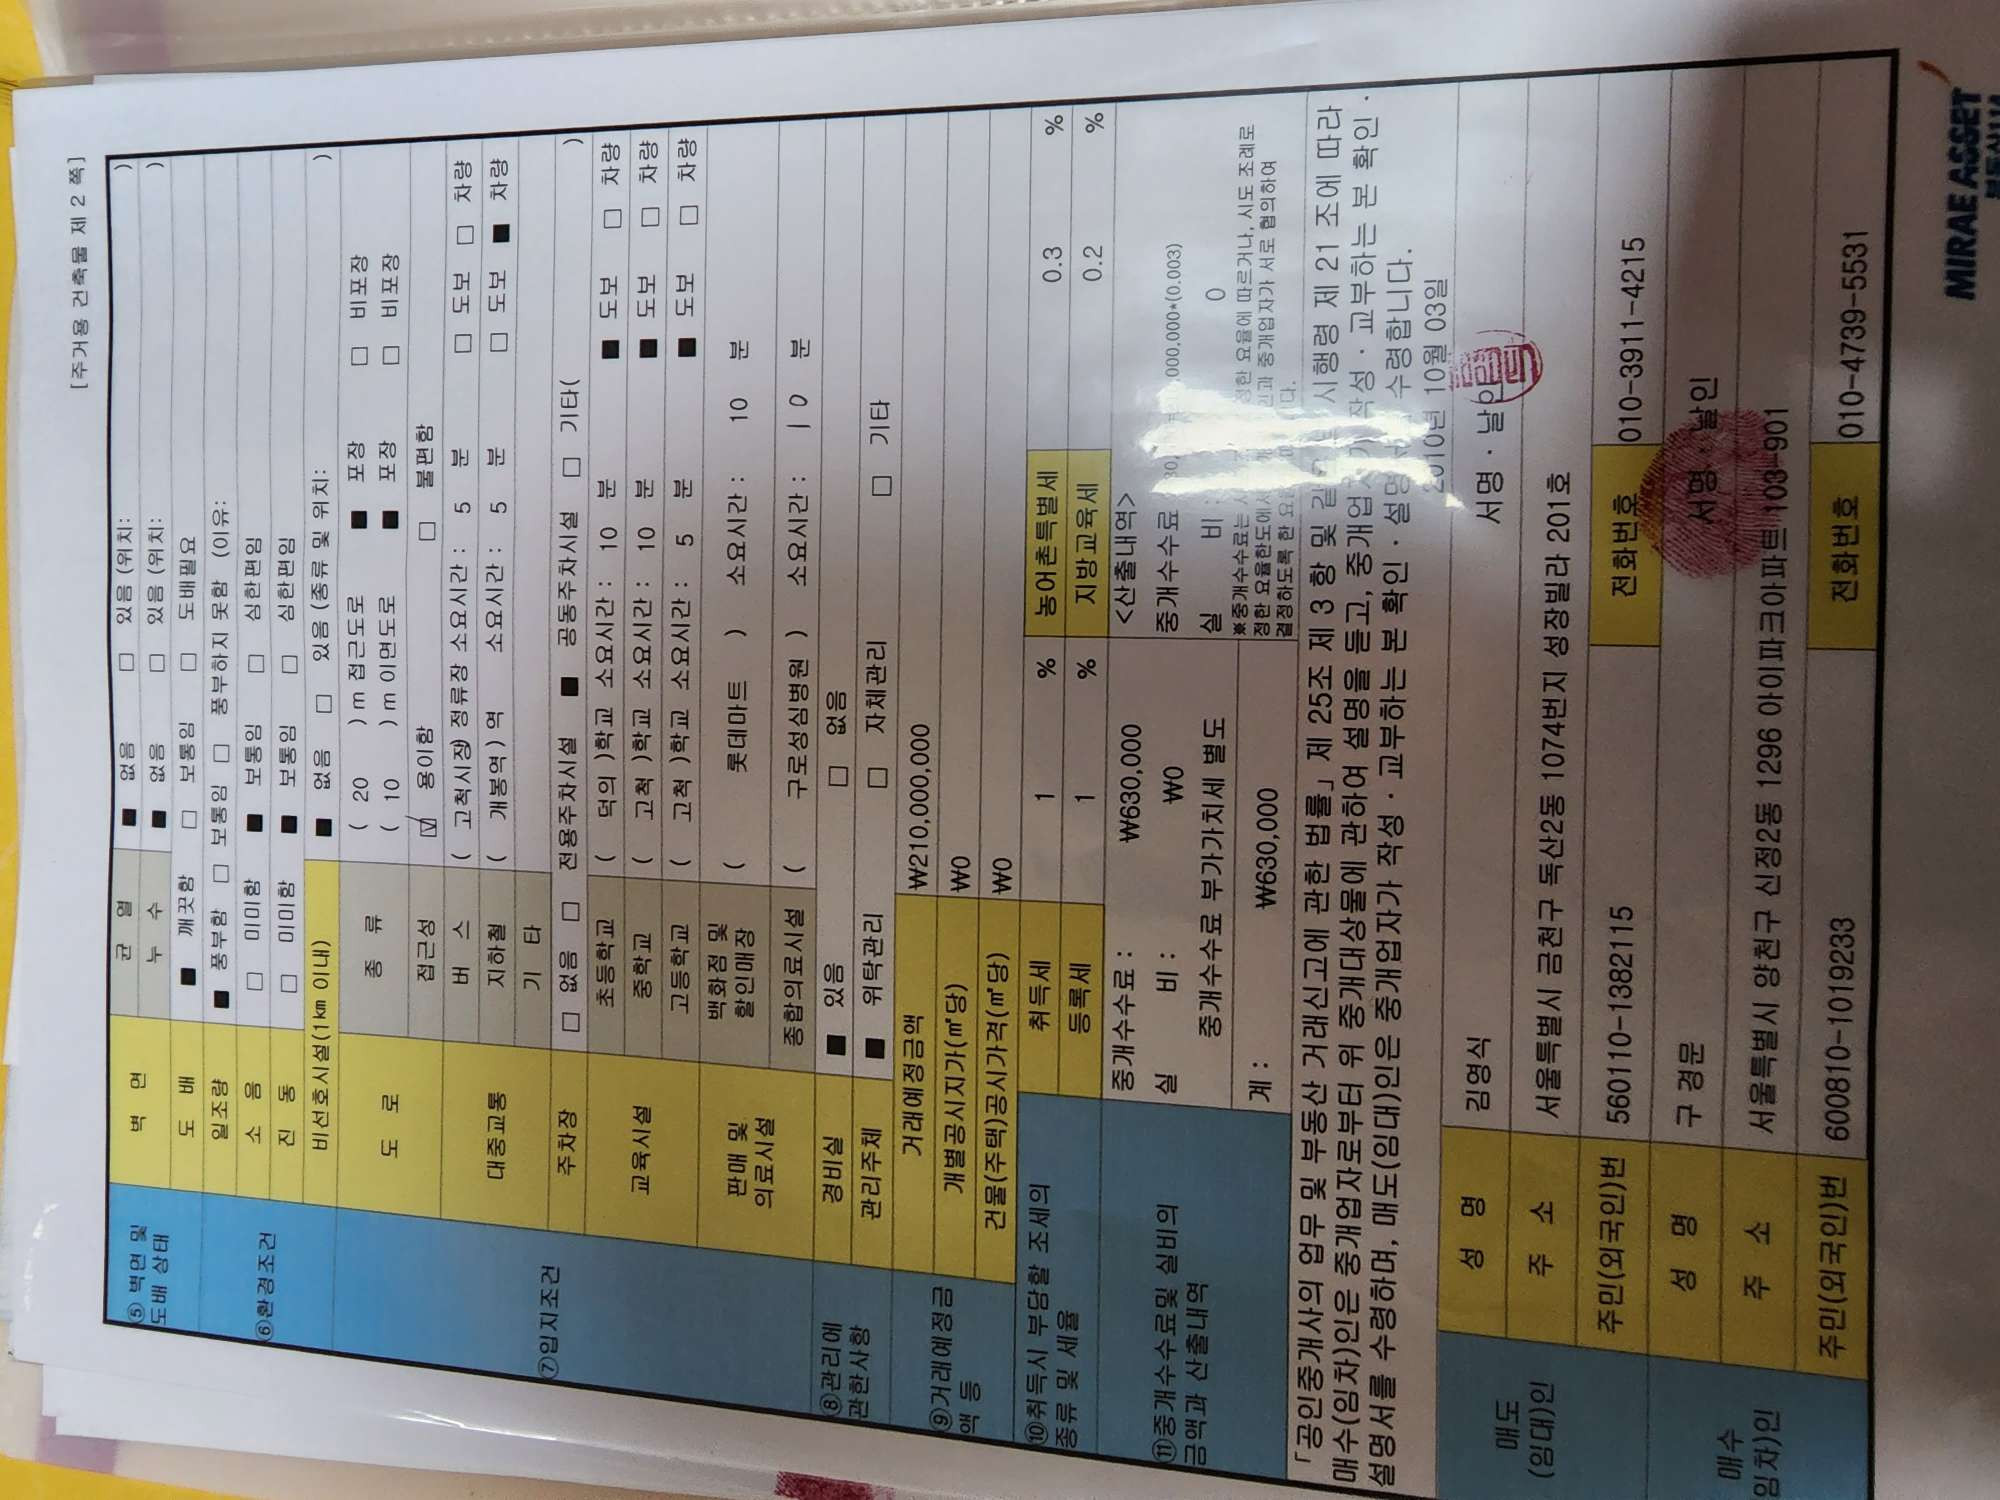 [주거용 건축물 제 2 쪽]
⑤ 벽면 및 도배 상태
벽 면
균 열 ■ 없음 □ 있음 (위치: )
누 수 ■ 없음 □ 있음 (위치: )
도 배 ■ 깨끗함 □ 보통임 □ 도배필요
⑥환경조건
일조량 ■ 풍부함 □ 보통임 □ 풍부하지 못함 (이유:
소 음 □ 미미함 ■ 보통임 □ 심한편임
진 동 □ 미미함 ■ 보통임 □ 심한편임
비선호시설(1㎞ 이내) ■ 없음 □ 있음 (종류 및 위치: )
⑦입지조건
도 로
종 류 ( 20 ) m 접근도로 ■ 포장 □ 비포장
( 10 ) m 이면도로 ■ 포장 □ 비포장
접근성 ☑ 용이함 □ 불편함
대중교통
버 스 ( 고척시장) 정류장 소요시간 : 5 분 □ 도보 □ 차량
지하철 ( 개봉역 ) 역 소요시간 : 5 분 □ 도보 ■ 차량
기 타
주차장 □ 없음 □ 전용주차시설 ■ 공동주차시설 □ 기타( )
교육시설
초등학교 ( 덕의 )학교 소요시간 : 10 분 ■ 도보 □ 차량
중학교 ( 고척 )학교 소요시간 : 10 분 ■ 도보 □ 차량
고등학교 ( 고척 )학교 소요시간 : 5 분 ■ 도보 □ 차량
판매 및 의료시설
백화점 및 할인매장 ( 롯데마트 ) 소요시간 : 10 분
종합의료시설 ( 구로성심병원 ) 소요시간 : 10 분
⑧관리에 관한사항
경비실 ■ 있음 □ 없음
관리주체 ■ 위탁관리 □ 자체관리 □ 기타
⑨거래예정금액 등
거래예정금액 ₩210,000,000
개별공시지가(㎡당) ₩0
건물(주택)공시가격(㎡당) ₩0
⑩취득시 부담할 조세의 종류 및 세율
취득세 1 % 농어촌특별세 0.3 %
등록세 1 % 지방교육세 0.2 %
⑪중개수수료및 실비의 금액과 산출내역
중개수수료 : ₩630,000
실 비 : ₩0
중개수수료 부가가치세 별도
계 : ₩630,000
<산출내역>
중개수수료 000,000*(0.003)
실 비 : 0
※중개수수료는 정한 요율에 따르거나, 시도 조례로
정한 요율한도에서 중개업자가 서로 협의하여
결정하도록 한
「공인중개사의 업무 및 부동산 거래신고에 관한 법률」 제 25조 제 3 항 및 시행령 제 21 조에 따라
매수(임차)인은 중개업자로부터 위 중개대상물에 관하여 설명을 듣고, 중개업 작성 · 교부하는 본 확인 ·
설명서를 수령하며, 매도(임대)인은 중개업자가 작성 · 교부하는 본 확인 · 설명 수령합니다.
2010년 10월 03일
매도 (임대)인
성 명 김영식 서명 · 날인
주 소 서울특별시 금천구 독산2동 1074번지 성장빌라 201호
주민(외국인)번 560110-1382115 전화번호 010-3911-4215
매수 임차)인
성 명 구경문 서명 · 날인
주 소 서울특별시 양천구 신정2동 1296 아이파크아파트 103-901
주민(외국인)번 600810-1019233 전화번호 010-4739-5531
MIRAE ASSET